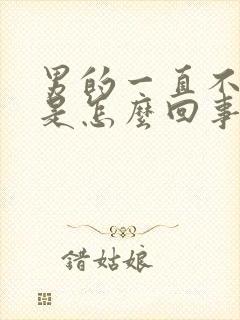 男的一直不
是怎麼回事
錯姑娘